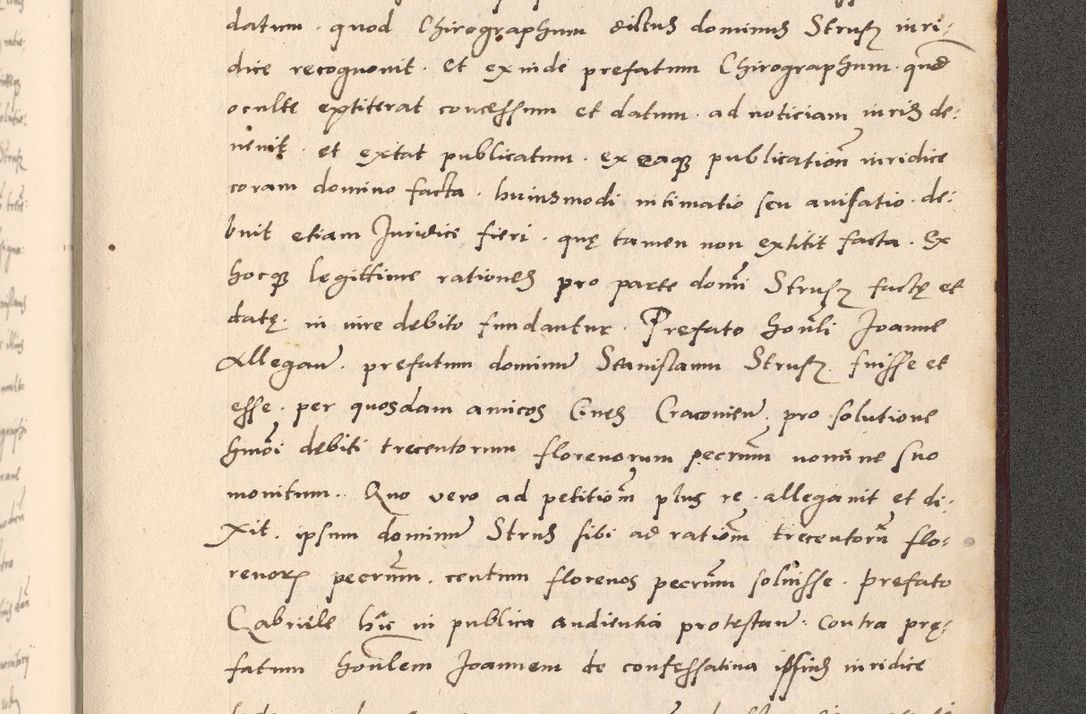 datum . quod Chirographum dictus dominus Strusz iuri-
dice recognouit . et exinde prefatum Chirographum . quod
occulte extiterat concessum et datum . ad noticiam iuris de-
uenit . et extat publicatum . ex eaque publication iuridice
coram domino facta . huiusmodi intimatio seu auisatio . de-
buit etiam Juridice fieri . quę tamen non extitit facta . Ex
hocque legittime rationes pro parte domi Strusz factę et
datę . in iure debito fundantur . Prefato honli Joanne
Allegan . prefatum dominum Stanislaum Strusz . fuisse et
esse . per quosdam amicos Ciues Cracouien . pro solutione
hmoi debiti trecentorum florenorum pecrum nomine suo
monitum . Quo vero ad petitiom plus re . allegauit et di-
xit . ipsum dominum Strus sibi ad ratiom trecentoru flo-
renorum pecrum . centum florenos pecrum soluisse . prefato
Gabriele hic in publica audientia protestan . contra prę-
fatum honlem Joannem de confessatina ipsius iuridice